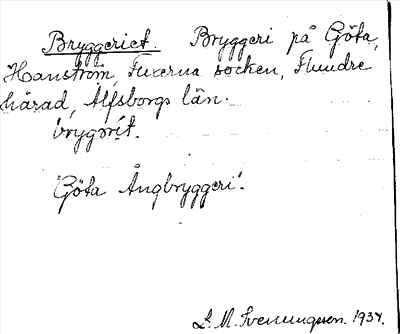 Bryggeriet. Bryggeri på Göta,
Hanström, Fuxerna socken, Flundre
härad, Älfsborgs län.
"Göta Ångbryggeri".
L. M. Svenungsson. 1934.